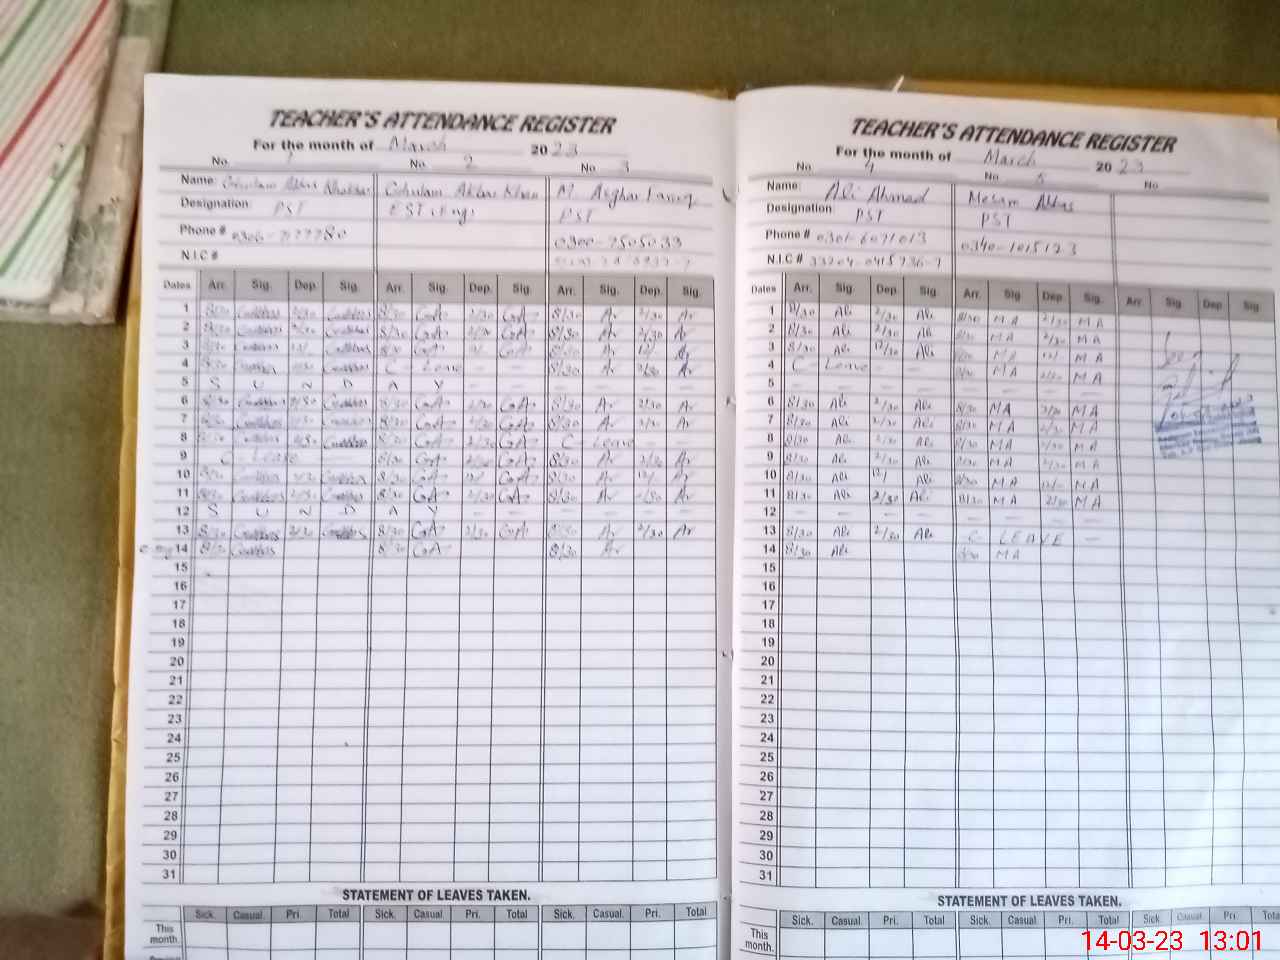 TEACHER'S ATTENDANCE REGISTER
For the month of March 2023
No. 1 No. 2 No. 3
Name: Ghulam Abbas Khokhar Ghulam Akbar Khan M. Asghar Farooq
Designation: PST EST (Eng) PST
Phone # 0300-7505033
N.I.C #
Dates Arr. Sig. Dep. Sig. Arr. Sig. Dep. Sig. Arr. Sig. Dep. Sig.
1 8/30 2/30 8/30 GA 2/30 GA 8/30 Ar 2/30 Ar
2 8/30 2/30 8/30 GA 2/30 GA 8/30 Ar 2/30 Ar
3 8/30 12/- 8/30 GA 12/- GA 8/30 Ar 12/- Ar
4 8/30 2/30 C - Leave - - 8/30 Ar 2/30 Ar
5 S U N D A Y - - - - - -
6 8/30 2/30 8/30 GA 2/30 GA 8/30 Ar 2/30 Ar
7 8/30 2/30 8/30 GA 2/30 GA 8/30 Ar 2/30 Ar
8 8/30 2/30 8/30 GA 2/30 GA C - Leave - -
9 C - Leave 8/30 GA 2/30 GA 8/30 Ar 2/30 Ar
10 8/30 8/30 GA 12/ GA 8/30 Ar 12/- Ar
11 8/30 2/30 8/30 GA 2/30 GA 8/30 Ar 2/30 Ar
12 S U N D A Y - - - - - -
13 8/30 2/30 8/30 GA 2/30 GA 8/30 Ar 2/30 Ar
14 8/30 8/30 GA 8/30 Ar
15
16
17
18
19
20
21
22
23
24
25
26
27
28
29
30
31
STATEMENT OF LEAVES TAKEN.
Sick. Casual. Pri. Total Sick. Casual Pri. Total Sick. Casual. Pri. Total
This month.
TEACHER'S ATTENDANCE REGISTER
For the month of March 2023
No. 4 No. 5 No
Name: Ali Ahmad Mesam Abbas
Designation PST PST
Phone # 0301-6071013 0340-1015123
N.I.C # 33204-0415736-7
Dates Arr. Sig. Dep. Sig. Arr. Sig Dep. Sig. Arr. Sig. Dep Sig.
1 8/30 Ali 2/30 Ali 8/30 MA 2/30 MA
2 8/30 Ali 2/30 Ali 8/30 MA 2/30 MA
3 8/30 Ali 12/30 Ali 8/30 MA 12/- MA
4 C - Leave - - 8/30 MA 2/30 MA
5 - - - - - - - -
6 8/30 Ali 2/30 Ali 8/30 MA 2/30 MA
7 8/30 Ali 2/30 Ali 8/30 MA 2/30 MA
8 8/30 Ali 2/30 Ali 8/30 MA 2/30 MA
9 8/30 Ali 2/30 Ali 8/30 MA 2/30 MA
10 8/30 Ali 12/ Ali 8/30 MA 12/- MA
11 8/30 Ali 2/30 Ali 8/30 MA 2/30 MA
12 - - - - - - - -
13 8/30 Ali 2/30 Ali C LEAVE -
14 8/30 Ali 8/30 MA
15
16
17
18
19
20
21
22
23
24
25
26
27
28
29
30
31
STATEMENT OF LEAVES TAKEN.
Sick. Casual. Pri. Total Sick. Casual Pri. Total Sick. Casual. Pri. Total
This month.
14-03-23 13:01